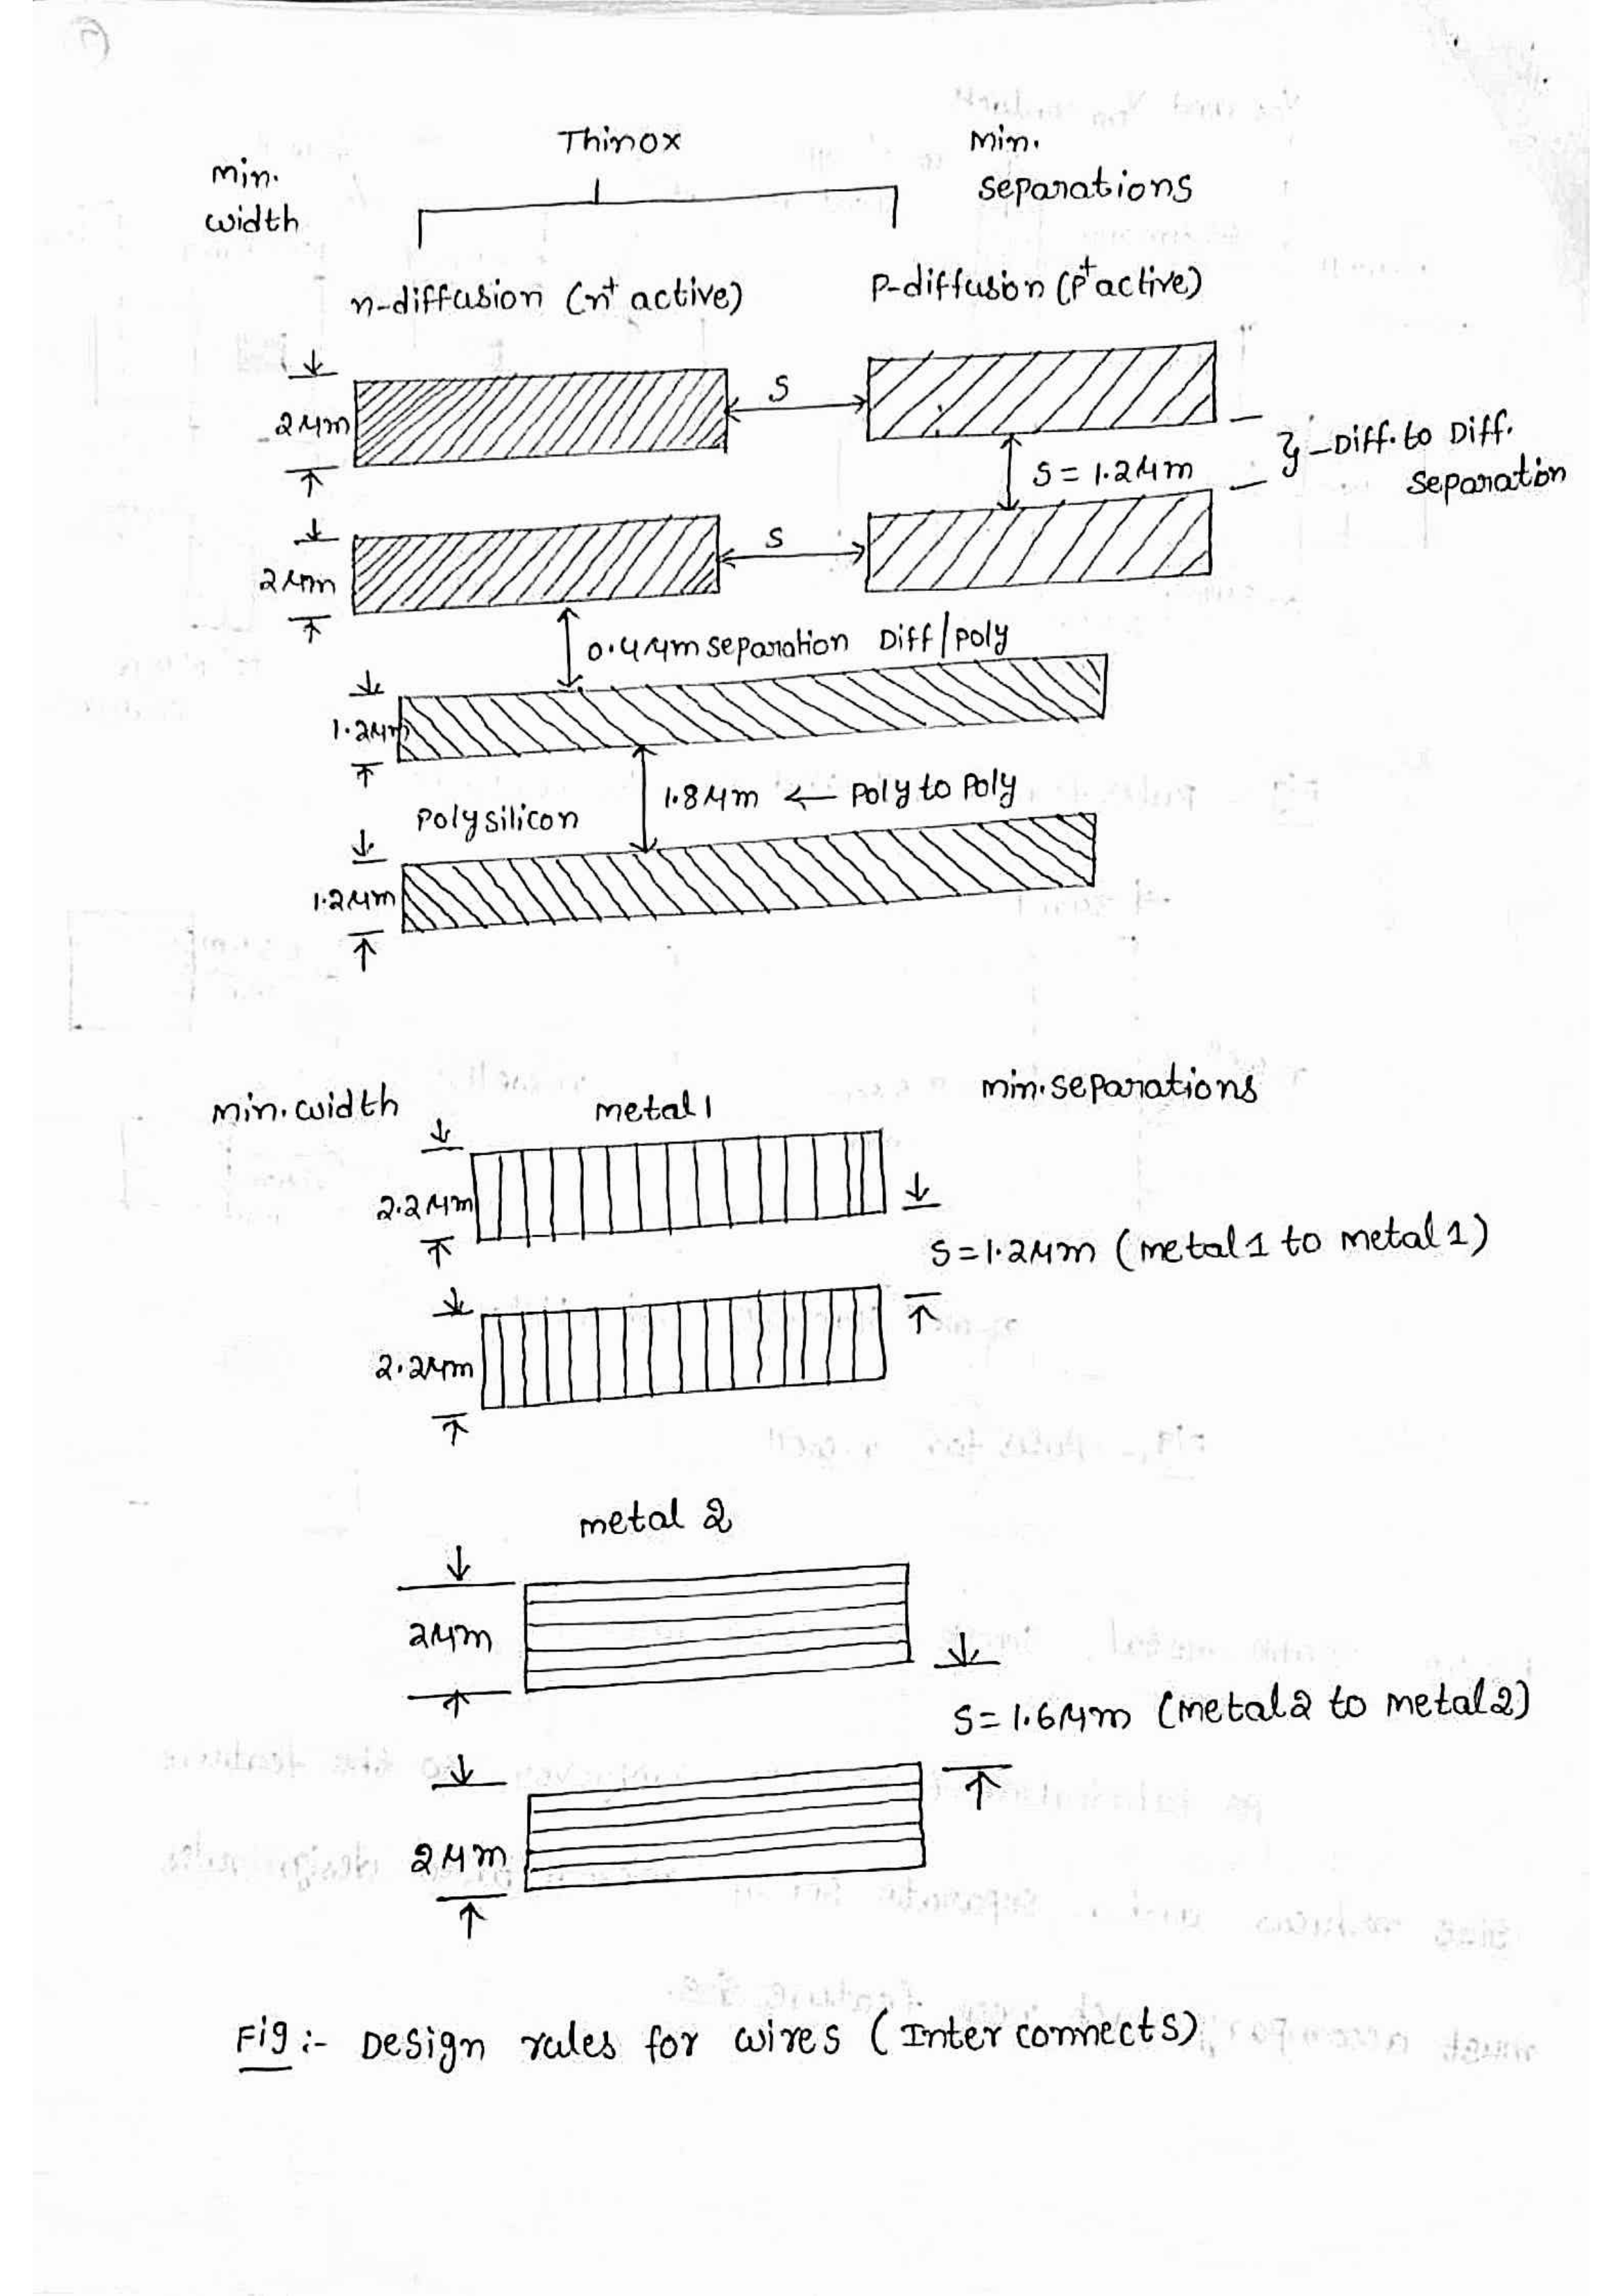 Thinox
min.
width
min.
separations
n-diffusion (n⁺ active)
P-diffusion (P⁺ active)
2μm
S
S = 1.2μm
} - Diff. to Diff.
separation
2μm
S
0.4μm separation Diff/poly
1.2μm
polysilicon
1.8μm ← poly to poly
1.2μm
min. width
metal 1
min. separations
2.2μm
S = 1.2μm (metal 1 to metal 1)
2.2μm
metal 2
2μm
S = 1.6μm (metal 2 to metal 2)
2μm
Fig :- Design rules for wires (Inter connects)